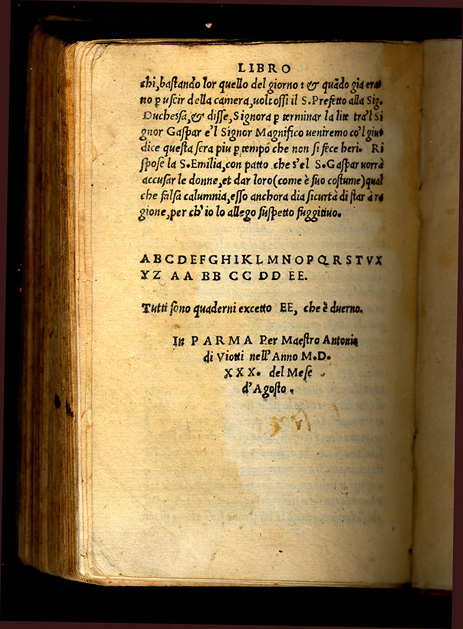 LIBRO
chi, bastando lor quello del giorno: & quãdo gia era
no p uscir della camera, uoltossi il S. Prefetto alla Sig.
Duchessa, & disse, Signora p terminar la lite tra'l Si
gnor Gaspar e'l Signor Magnifico ueniremo co'l giu
dice questa sera piu p tempo che non si fece heri. Ri
spose la S. Emilia, con patto che s'el S. Gaspar uorrà
accusar le donne, et dar loro (come è suo costume) qual
che falsa calumnia, esso anchora dia sicurtà di star à ra
gione, per ch'io lo allego suspetto fuggitiuo.
ABCDEFGHIKLMNOPQRSTVX
YZ AA BB CC DD EE.
Tutti sono quaderni excetto EE, che è duerno.
In PARMA Per Maestro Antonio
di Viotti nell'Anno M.D.
XXX. del Mese
d'Agosto.